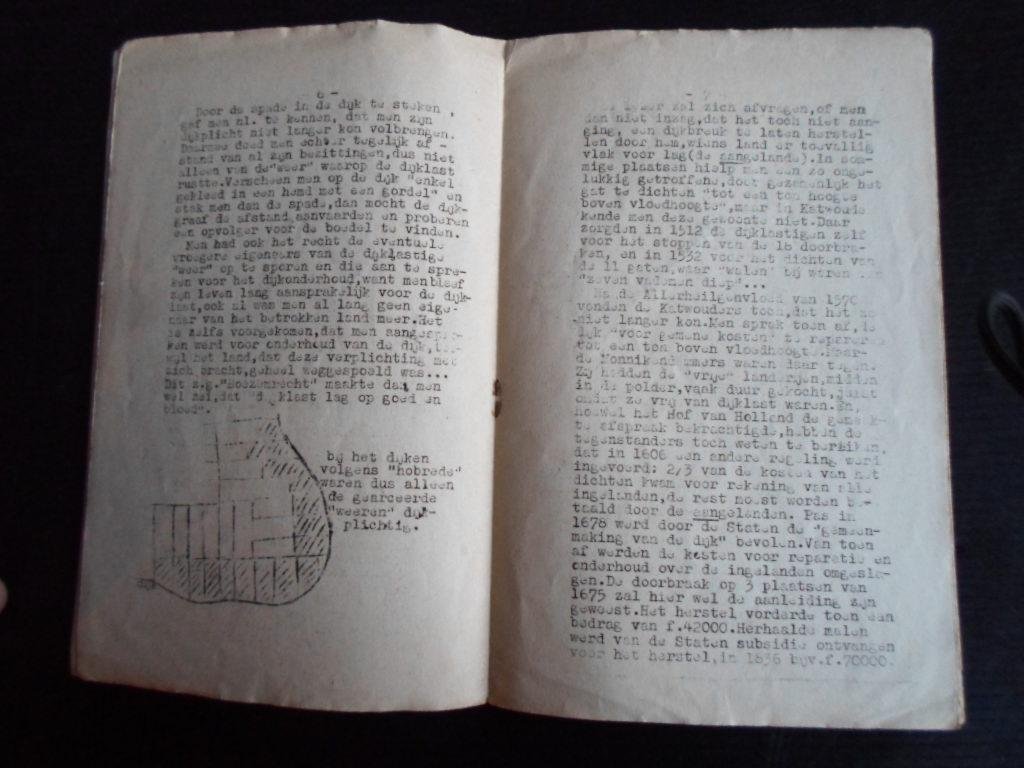 6 -
Door de spade in de dijk te steken,
gaf men nl. te kennen, dat men zijn
dijkplicht niet langer kon volbrengen.
Daarmee deed men echter tegelijk af-
stand van al zijn bezittingen,dus niet
alleen van de"weer" waarop de dijklast
rustte.Verscheen men op de dijk "enkel
gekleed in een hemd met een gordel" en
stak men dan de spade,dan mocht de dijk-
graaf de afstand aanvaarden en proberen
een opvolger voor de boedel te vinden.
Men had ook het recht de eventuele
vroegere eigenaars van de dijklastige
"weer" op te sporen en die aan te spre-
ken voor het dijkonderhoud,want menbleef
zijn leven lang aansprakelijk voor de dijk-
last,ook al was men al lang geen eige-
naar van het betrokken land meer.Het
is zelfs voorgekomen,dat men aangespro-
ken werd voor onderhoud van de dijk,ter-
wijl het land,dat deze verplichting met
zich bracht,geheel weggespoeld was...
Dit z.g."Boezemrecht" maakte dat men
wel zei,dat "dijklast lag op goed en
bloed".
bij het dijken
volgens "hobrede"
waren dus alleen
de gearceerde
"weeren" dijk-
plichtig.
- 7
lezer zal zich afvragen,of men
dan niet inzag,dat het toch niet aan-
ging, een dijkbreuk te laten herstel-
len door hem,wiens land er toevallig
vlak voor lag(de aangelande).In som-
mige plaatsen hielp men een zo onge-
lukkig getroffene,door gezamenlijk het
gat te dichten "tot een ton hoogte
boven vloedhoogte",maar in Katwoude
kende men deze gewoonte niet.Daar
zorgden in 1512 de dijklastigen zelf
voor het stoppen van de 18 doorbra-
ken, en in 1532 voor het dichten van
de 11 gaten,waar "walen" bij waren van
"zeven vademen diep"...
Na de Allerheilgenvloed van 1570
vonden de Katwouders toch,dat het zo
niet langer kon.Men sprak toen af,de
dijk "voor gemene kosten" te repareren
tot een ton boven vloedhoogte.Maar
de Monnikendammers waren daar tegen.
Zij hadden de "vrije" landerijen,midden
in de polder,vaak duur gekocht,juist
omdat ze vrij van dijklast waren.En,
hoewel het Hof van Holland de gemaak-
te afspraak bekrachtigde,hebben de
tegenstanders toch weten te bereiken,
dat in 1606 een andere regeling werd
ingevoerd: 2/3 van de kosten van het
dichten kwam voor rekening van alle
ingelanden,de rest moest worden be-
taald door de aangelanden. Pas in
1678 werd door de Staten de "gemeen-
making van de dijk" bevolen.Van toen
af werden de kosten voor reparatie en
onderhoud over de ingelanden omgesla-
gen.De doorbraak op 3 plaatsen van
1675 zal hier wel de aanleiding zijn
geweest.Het herstel vorderde toen een
bedrag van f.42000.Herhaalde malen
werd van de Staten subsidie ontvangen
voor het herstel,in 1836 bijv.f.70000.